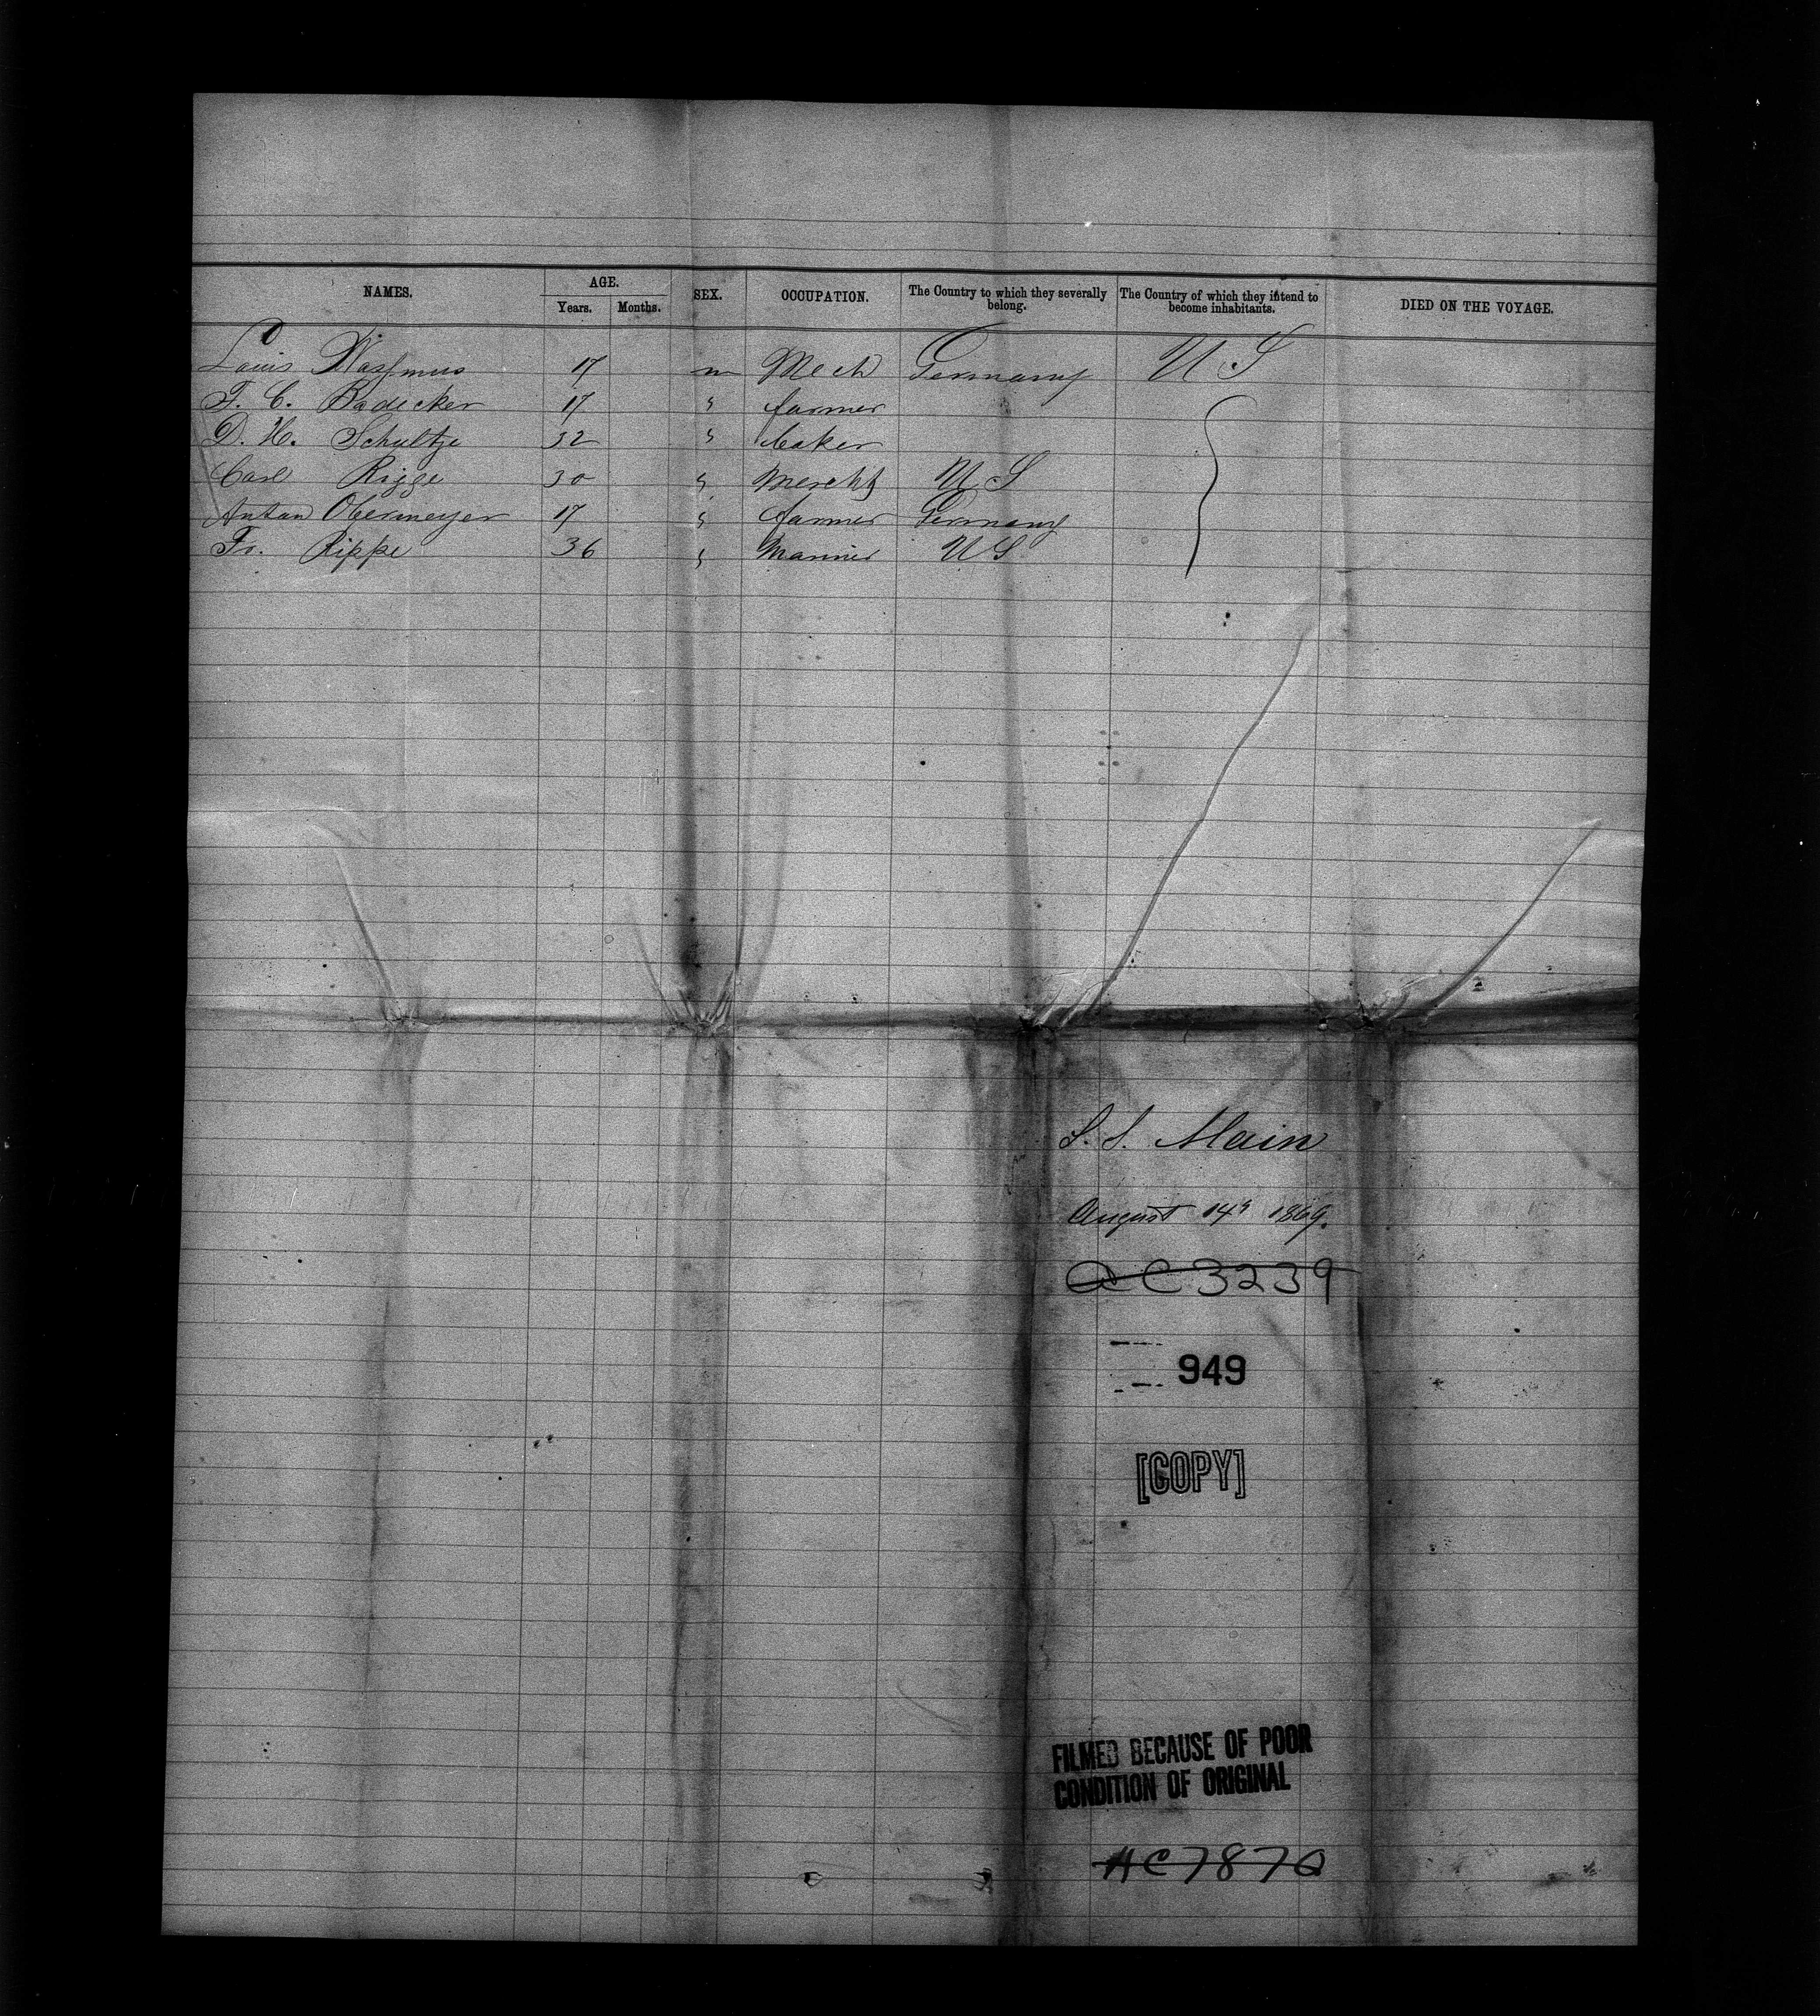 NAMES. AGE. SEX. OCCUPATION. The Country to which they severally belong. The Country of which they intend to become inhabitants. DIED ON THE VOYAGE.
Years. Months.
Louis Wassmus 17 m Mech Germany U S
F. C. Badecker 17 " farmer
D. H. Schultze 32 " baker
Carl Rigge 30 " Mercht U S
Anton Obermeyer 17 " farmer Germany
Fr. Rippe 36 " Marine U S
S. S. Main
August 14th 1869.
QC3239
949
[COPY]
FILMED BECAUSE OF POOR
CONDITION OF ORIGINAL
AC7870